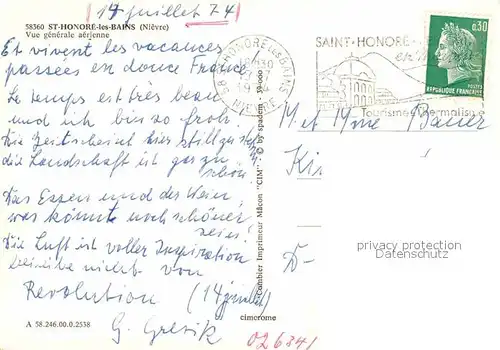 (14 juillet 74)
58360 ST-HONORÉ-les-BAINS (Nièvre)
Vue générale aérienne
Et vivent les vacances
passées en douce France
Le temps est très beau
und ich bin so froh.
Die Zeit scheint hier still gestehen
die Landschaft ist gar zu
schön
Das Essen und der Wein,
was könnte noch schöner
sein!
Die Luft ist voller Inspiration
beileibe nicht von
Revolution (14 juillet)
G. Gresik
A 58.246.00.0.2538
Combier Imprimeur Mâcon "CIM" © by spadem 39.000
cimcrome
58 ST HONORE les BAINS
NIEVRE
SAINT-HONORE-
Tourisme Thermalisme
0,30
REPUBLIQUE FRANÇAISE
POSTES
M. et Mme Bauer
D-
privacy protection
Datenschutz
026341